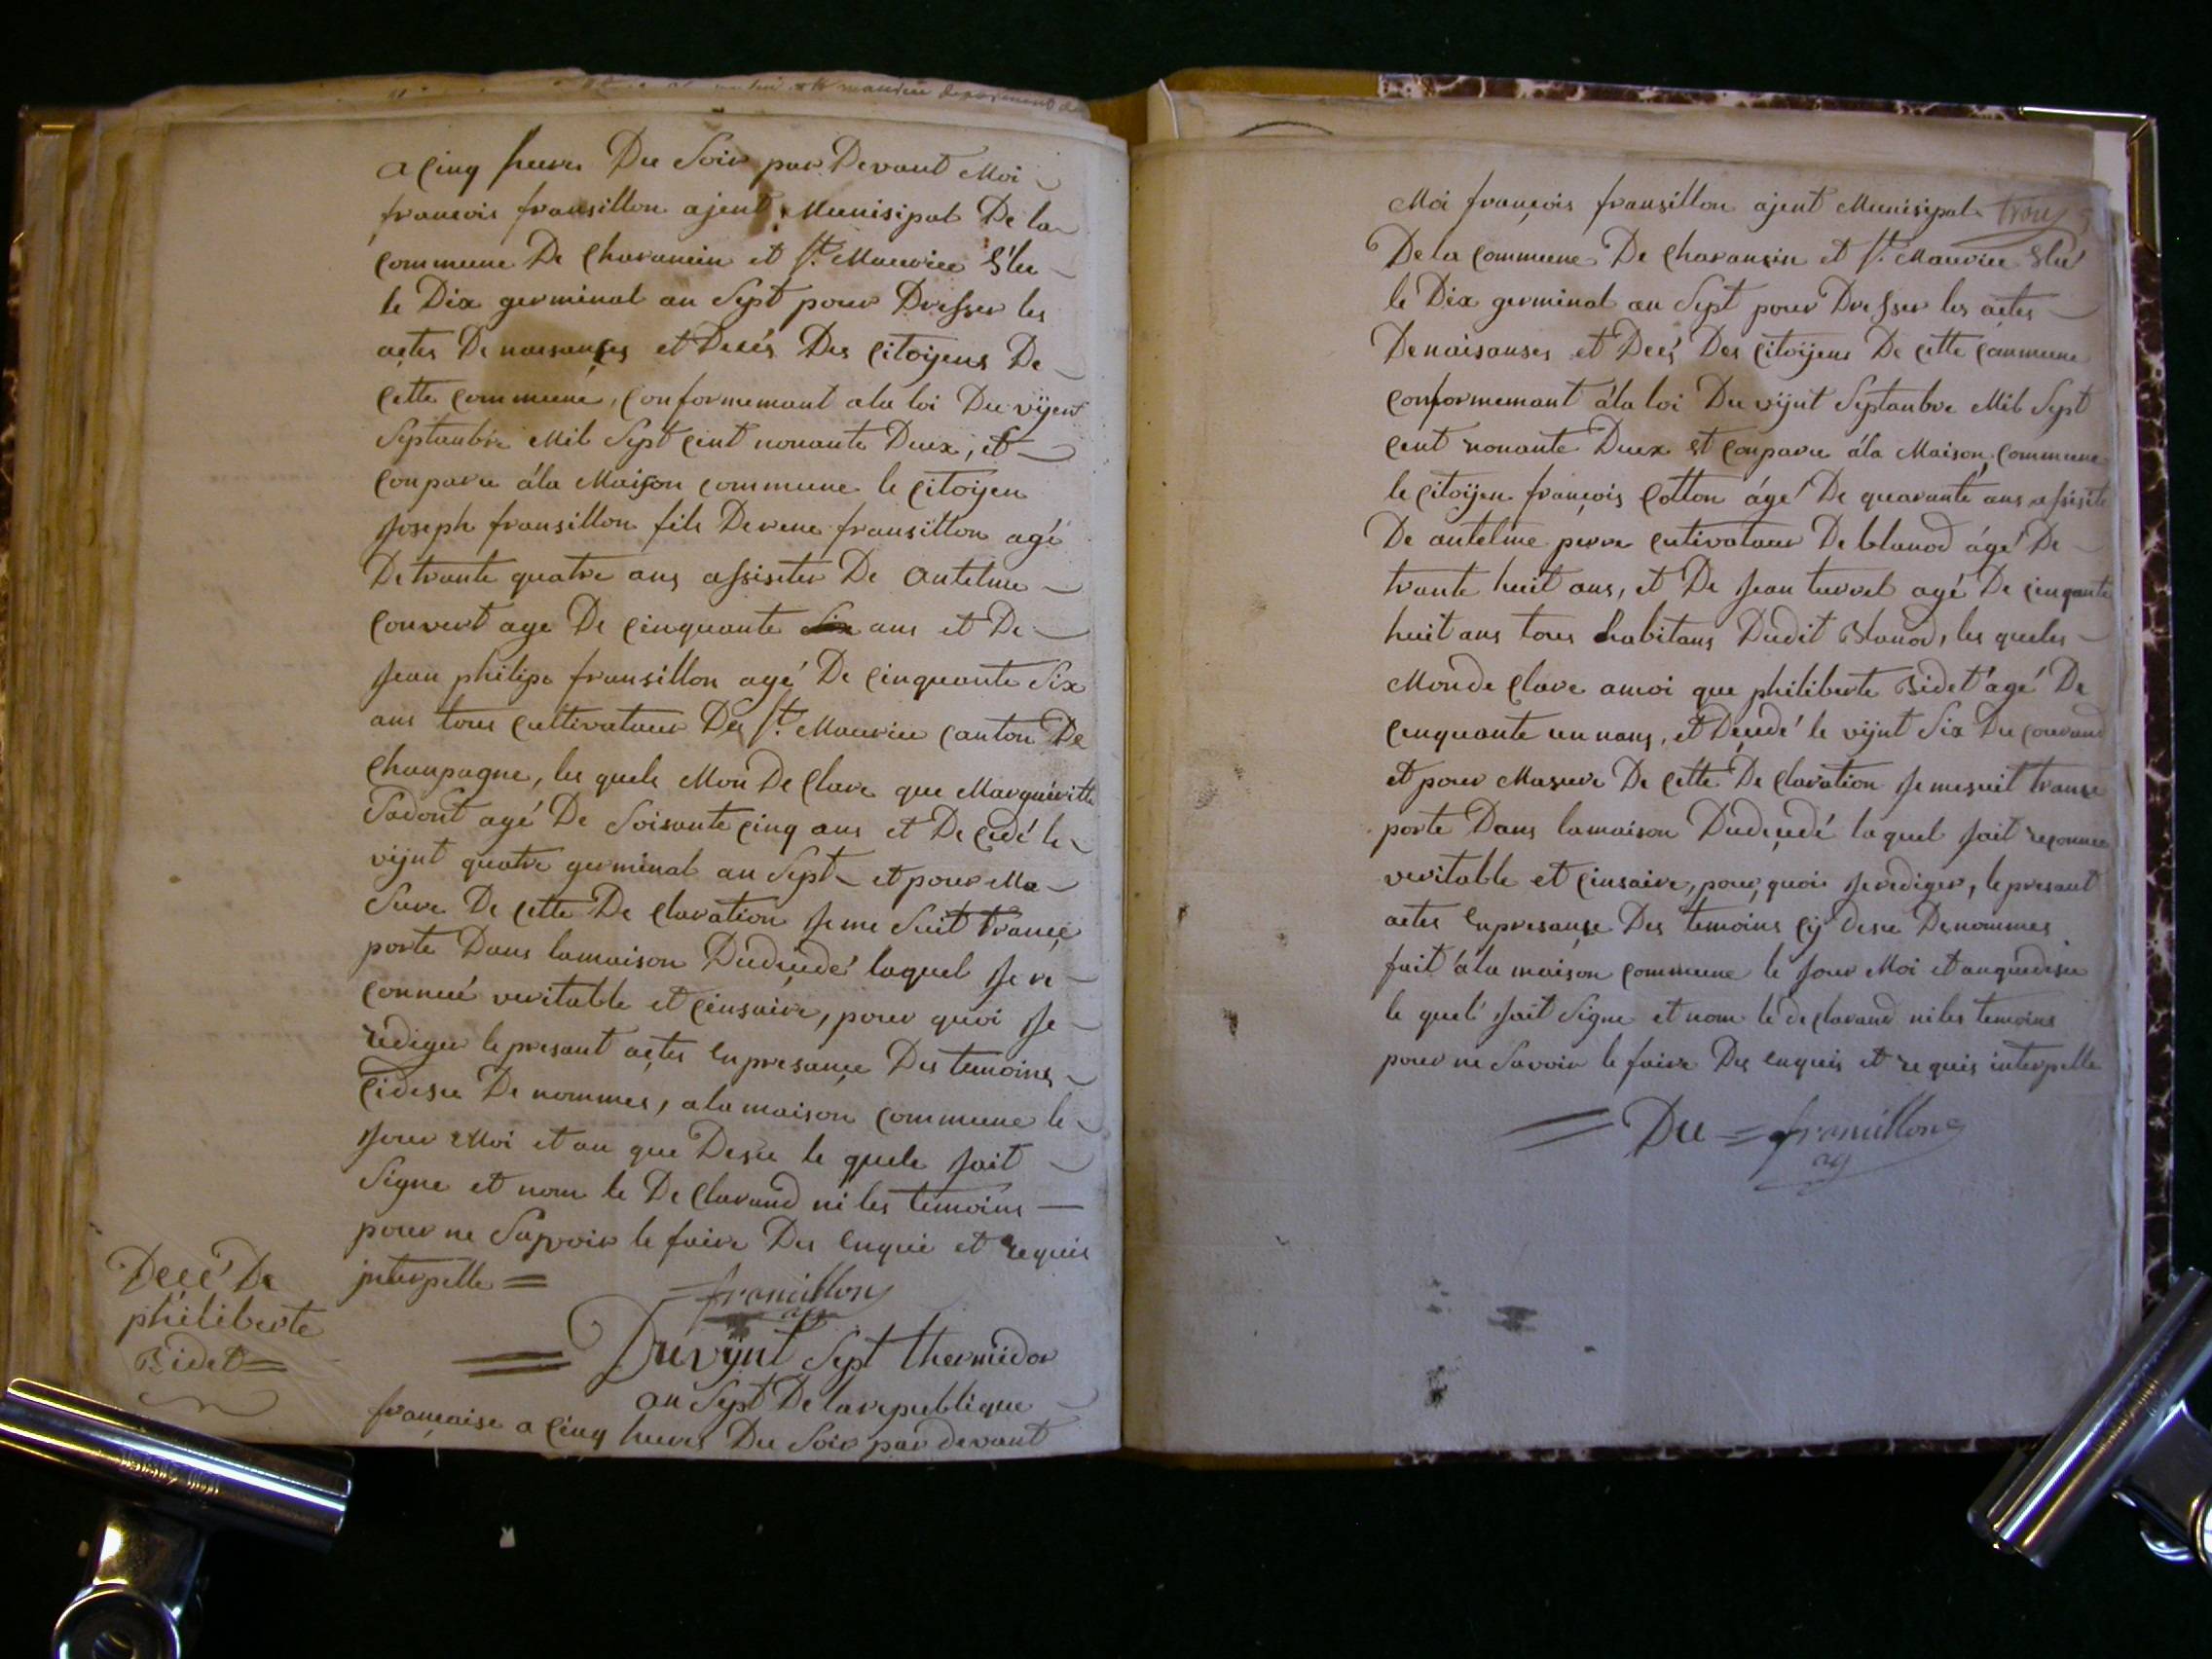 a Cinq heures Du Soir par Devant Moi
francois fransillon ajent Munisipal De la
Commune De Charancin et St. Maurice Elu
le Dix germinal an Sept pour Dresser les
actes De naisanses et Desés Des Citoijens De
Cette Commune, Conformemant a la loi Du vijent
Septanbre Mil Sept Cent nonante Deux, et
Conparu á la Maison commune le Citoijen
Joseph fransillon fils De rene fransillon agé
De trante quatre ans assister De antelme
Convert age De Cinquante ans et De
Jean philipe fransillon agé De Cinquante Six
ans tous Cultivateur De St. Maurice Canton De
Chanpagne, les quels Mon De Clare que Margueritte
Sadont agé De Soisante Cinq ans et De Cedé le
vijnt quatre germinal an Sept et pour Ma
Sure De Cette De Claration Je me Suit trance
porte Dans la maison Dudecedé laquel Je re
Connué veritable et Cinsaire, pour quoi Je
rediger le presant actes en presance Des temoins
Cidesu De nommes, a la maison Commune le
Jour Moi et an que Desu le quels Jait
Signe et nom le De Clarand ni les temoins
pour ne Sapvoir le faire Des enqui et requis
interpelle =
francillon
ag
Decé De
philiberte
Bidet =
= Du vijnt Sept thermidor
an Sept De la republique
française a Cinq heures Du Soir par devant
Moi françois fransillon ajent Munisipal trois
De la Commune De Charansin et St. Maurice Elu
le Dix germinal an Sept pour Dresser les actes
De naisanses et Decé Des Citoijens De Cette Commune
Conformemant á la loi Du vijnt Septanbre Mil Sept
Cent nonante Deux et Conparu á la Maison Commune
le Citoijen françois Cotton ágé De quarante ans assiste
De antelme perre Cutivataur De blanod ágé De
trante huit ans, et De Jean turrel agé De Cinqante
huit ans tous habitans Dudit Blanod, les queles
Mon de Clare a moi que philiberte Bidet agé De
Cinquante un nans, et Decedé le vijnt Six Du Courand
et pour Masure De Cette De Claration Je me suit trance
porte Dans la maison Dudecedé laquel Jait reconnue
veritable et Cinsaire, pour quoi Je rediger, le presant
actes en presanse Des temoins Cy desu Denommes
fait á la maison Commune le Jour Moi et an quedesu
le quel Jait Signe et nom le de Clarand ni les temoins
pour ne Savoir le faire Des enquis et requis interpelle
= Du = francillon
ag